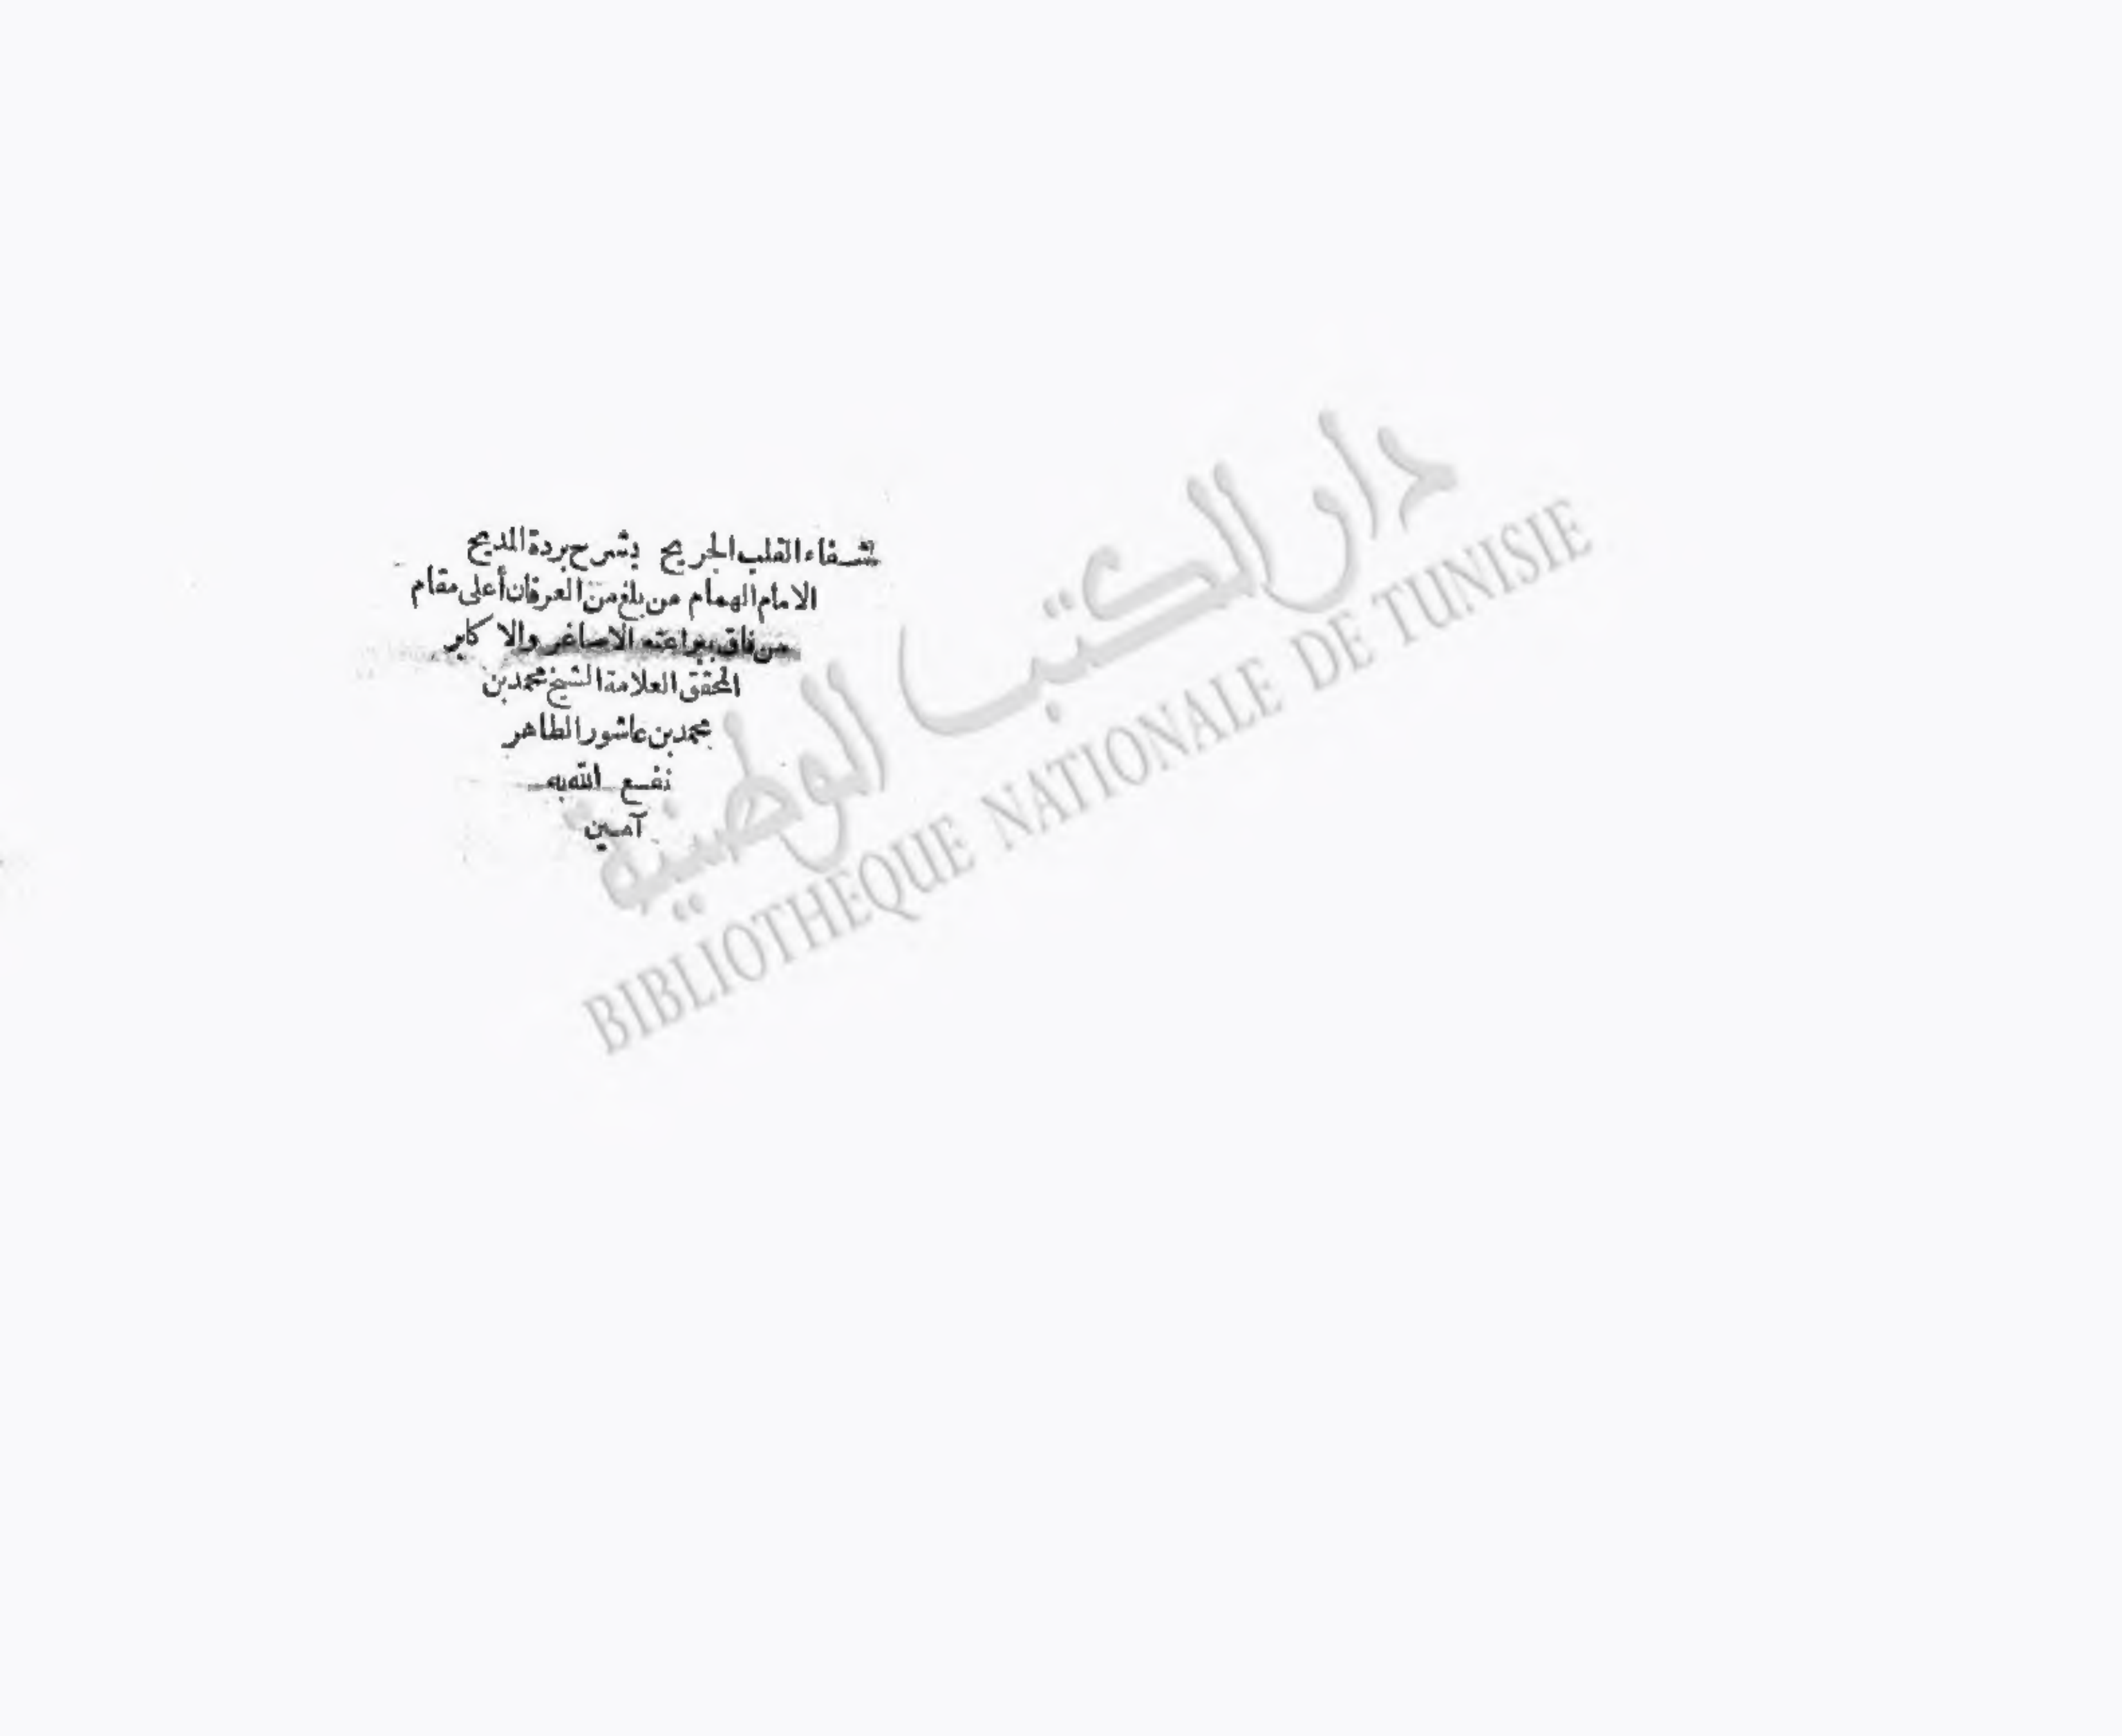 شفاء القلب الجريح بشرح بردة المديح
الامام الهمام من بلغ من العرفان أعلى مقام
من فاق ببراعته الاصاغر والاكابر
المحقق العلامة الشيخ محمد بن
محمد بن عاشور الطاهر
نفع الله به
آمين
دار الكتب الوطنية
BIBLIOTHEQUE NATIONALE DE TUNISIE